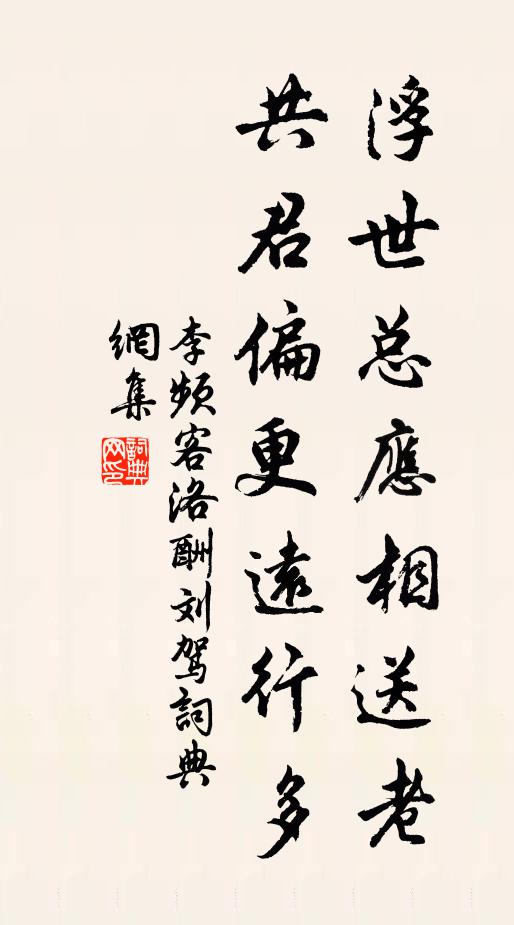 浮世总應相送老
共君偏更遠行多
李频客洛酬刘驾詞典
網集
詞典
网印